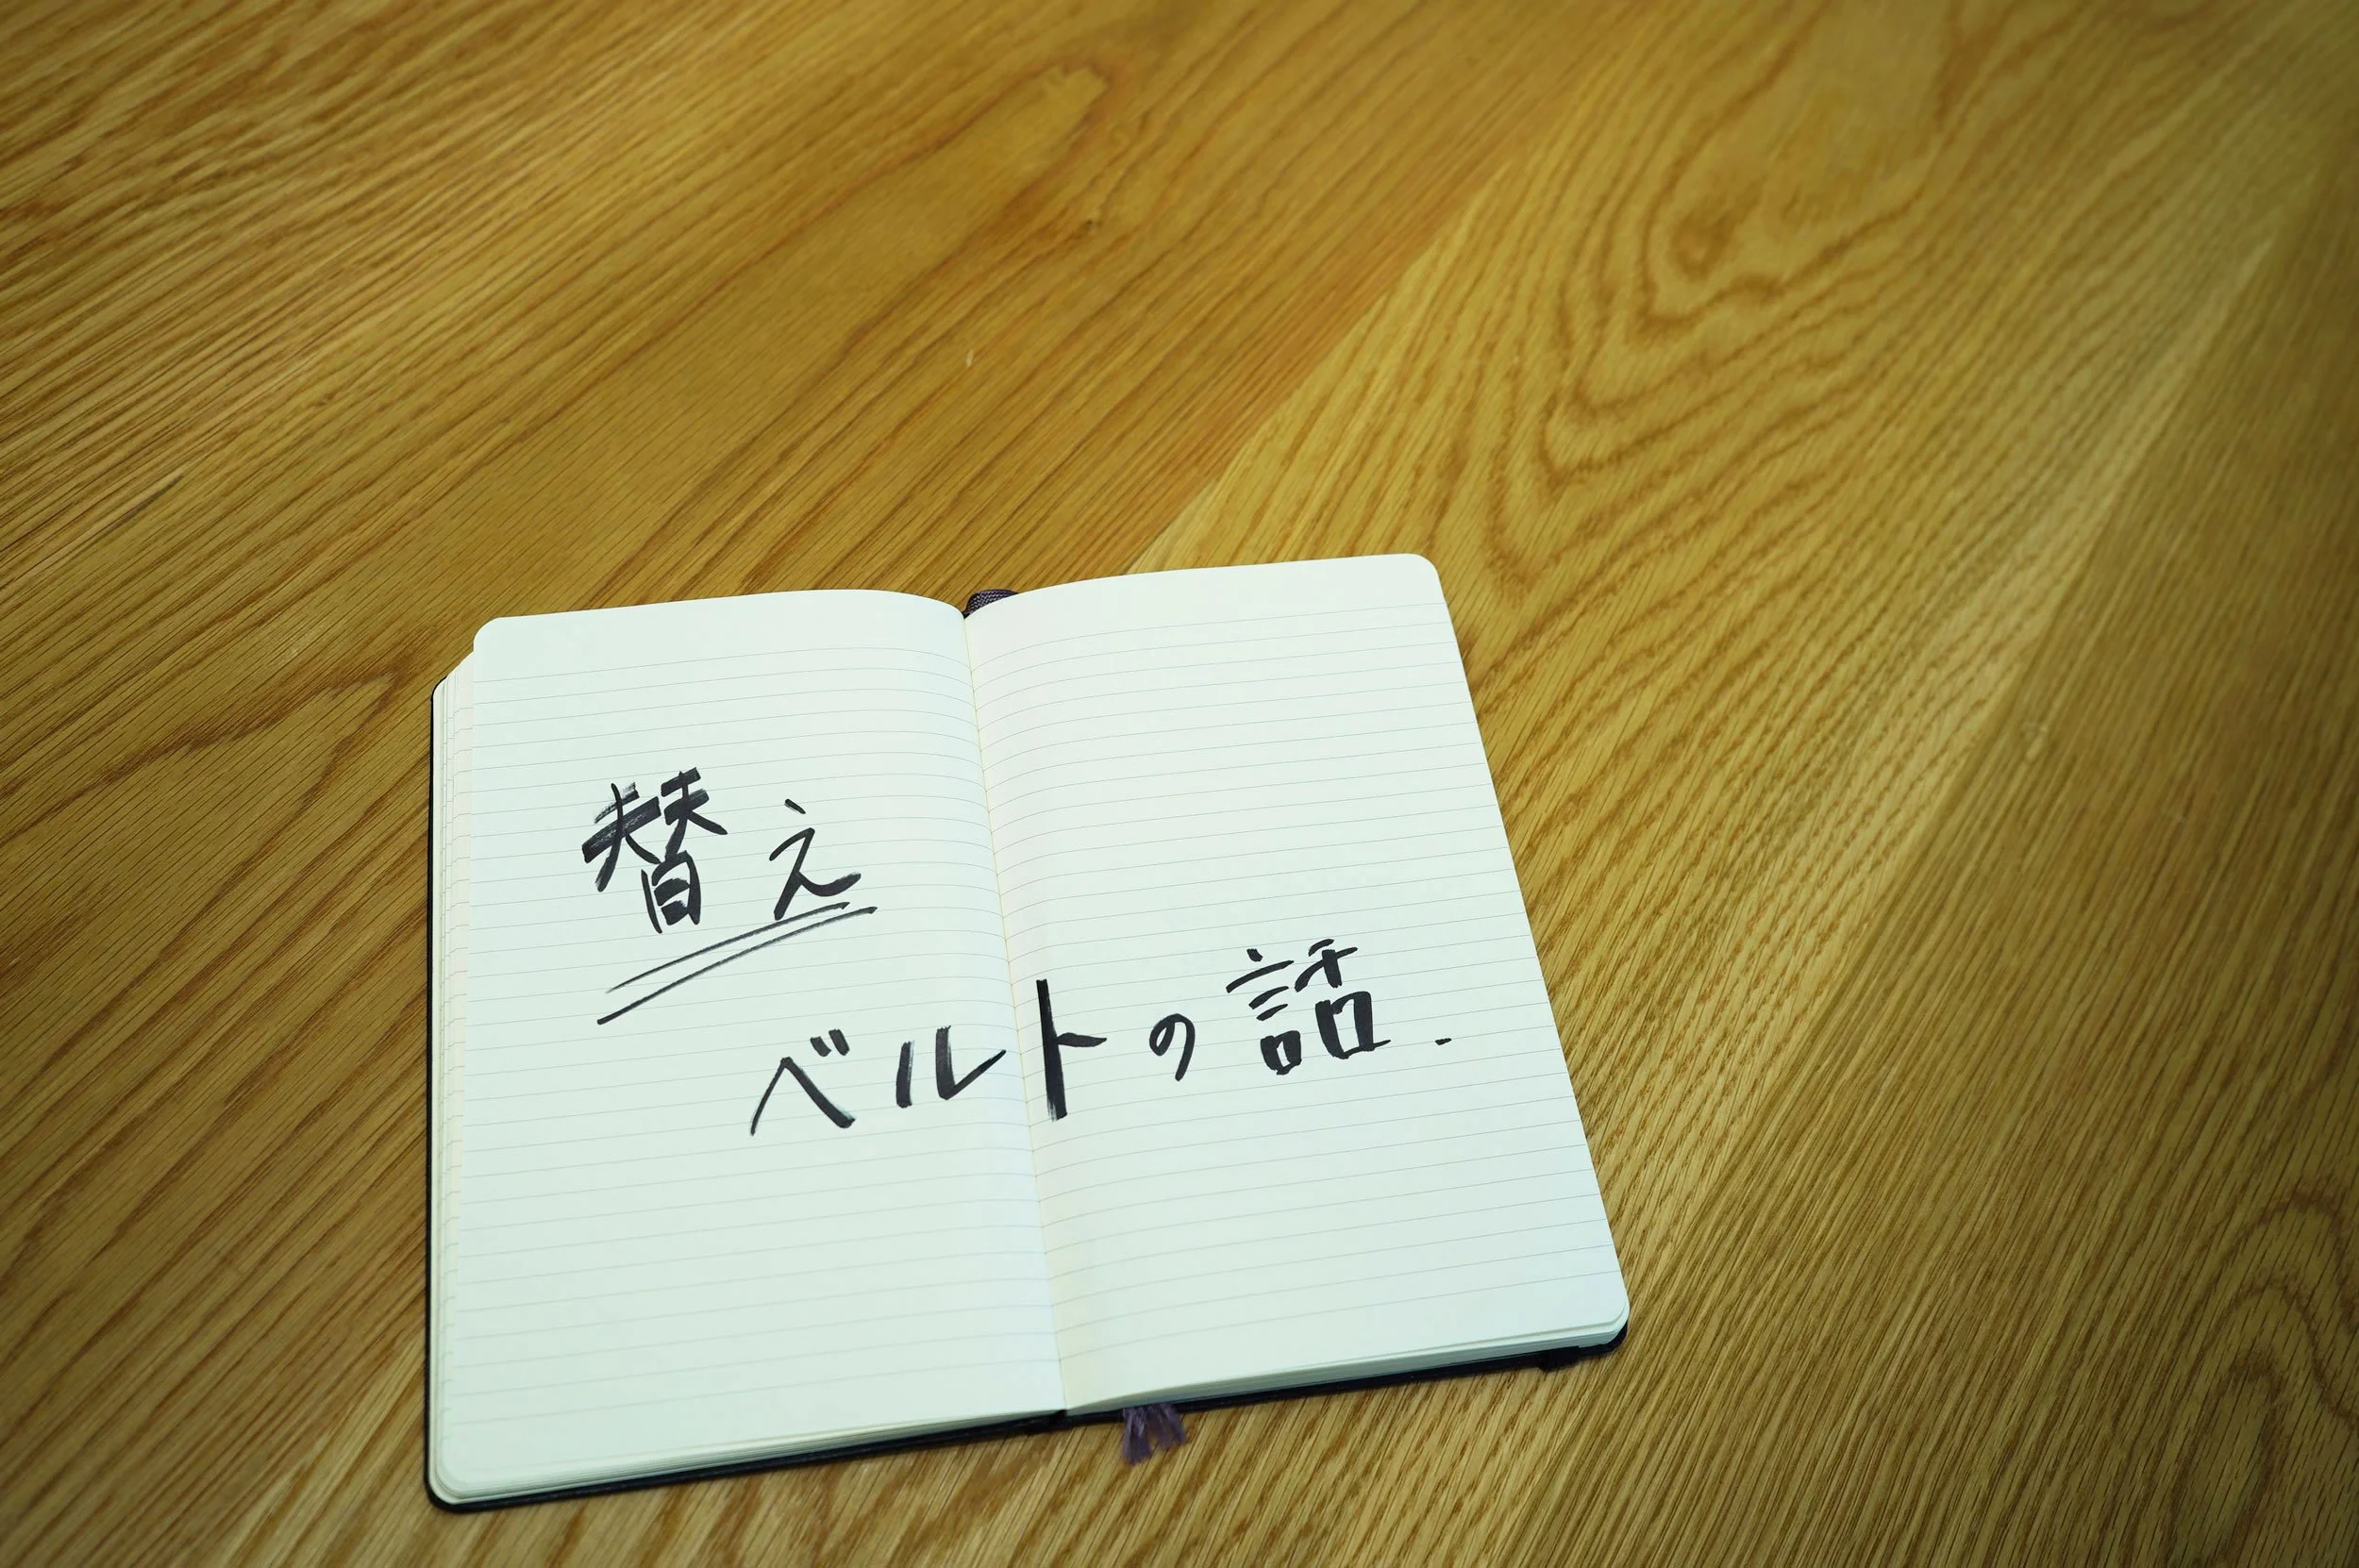 替え
ベルトの話.